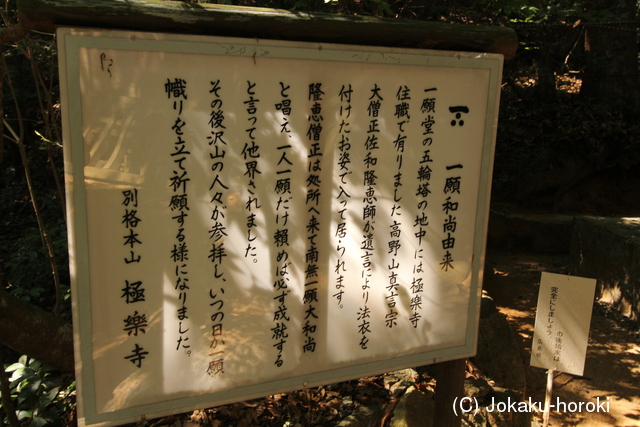 一願和尚由来
一願堂の五輪塔の地中には極楽寺
住職で有りました高野山真言宗
大僧正佐和隆恵師が遺言により法衣を
付けたお姿で入って居られます。
隆恵僧正は処所へ来て南無一願大和尚
と唱え、一人一願だけ頼めば必す成就する
と言って他界されました。
その後沢山の人々が参拝し、いつの日か一願
幟りを立て祈願する様になりました。
別格本山 極樂寺
完全にしましょう
(C) Jokaku-horoki